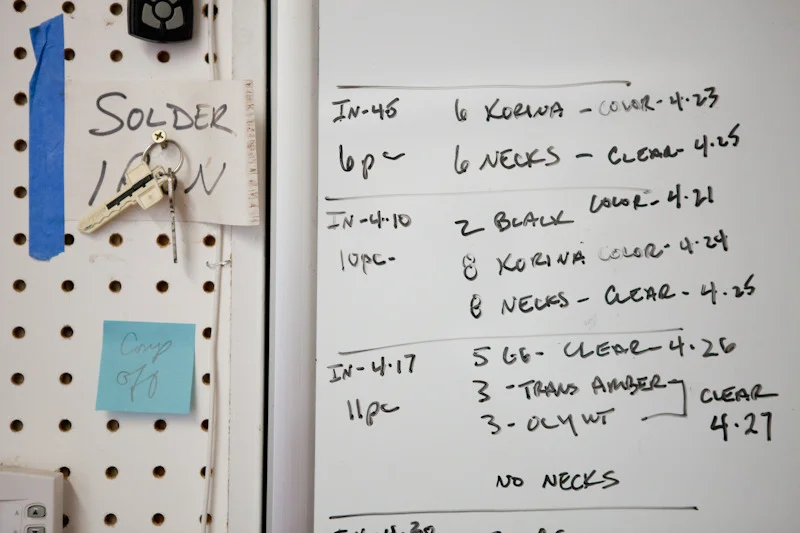 SOLDER
IRON
Comp
off
IN-4.5 6 KORINA - COLOR - 4.23
6pc 6 NECKS - CLEAR - 4.25
IN-4.10 2 BLACK COLOR - 4.21
10pc- 8 KORINA COLOR - 4.24
8 NECKS - CLEAR - 4.25
IN-4.17 5 GG- CLEAR - 4.26
11pc 3 - TRANS AMBER
3 - OLY WT
CLEAR
4.27
NO NECKS